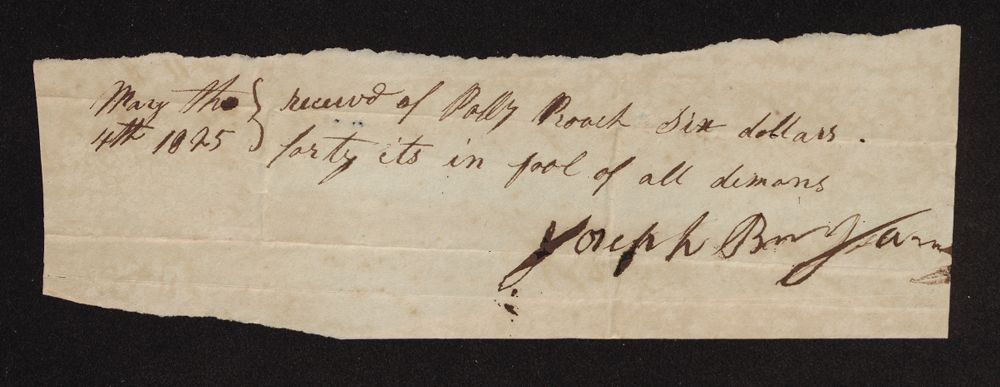 May the } receivd of Polly Roach six dollars.
4th 1825 forty cts in fool of all demans
Joseph